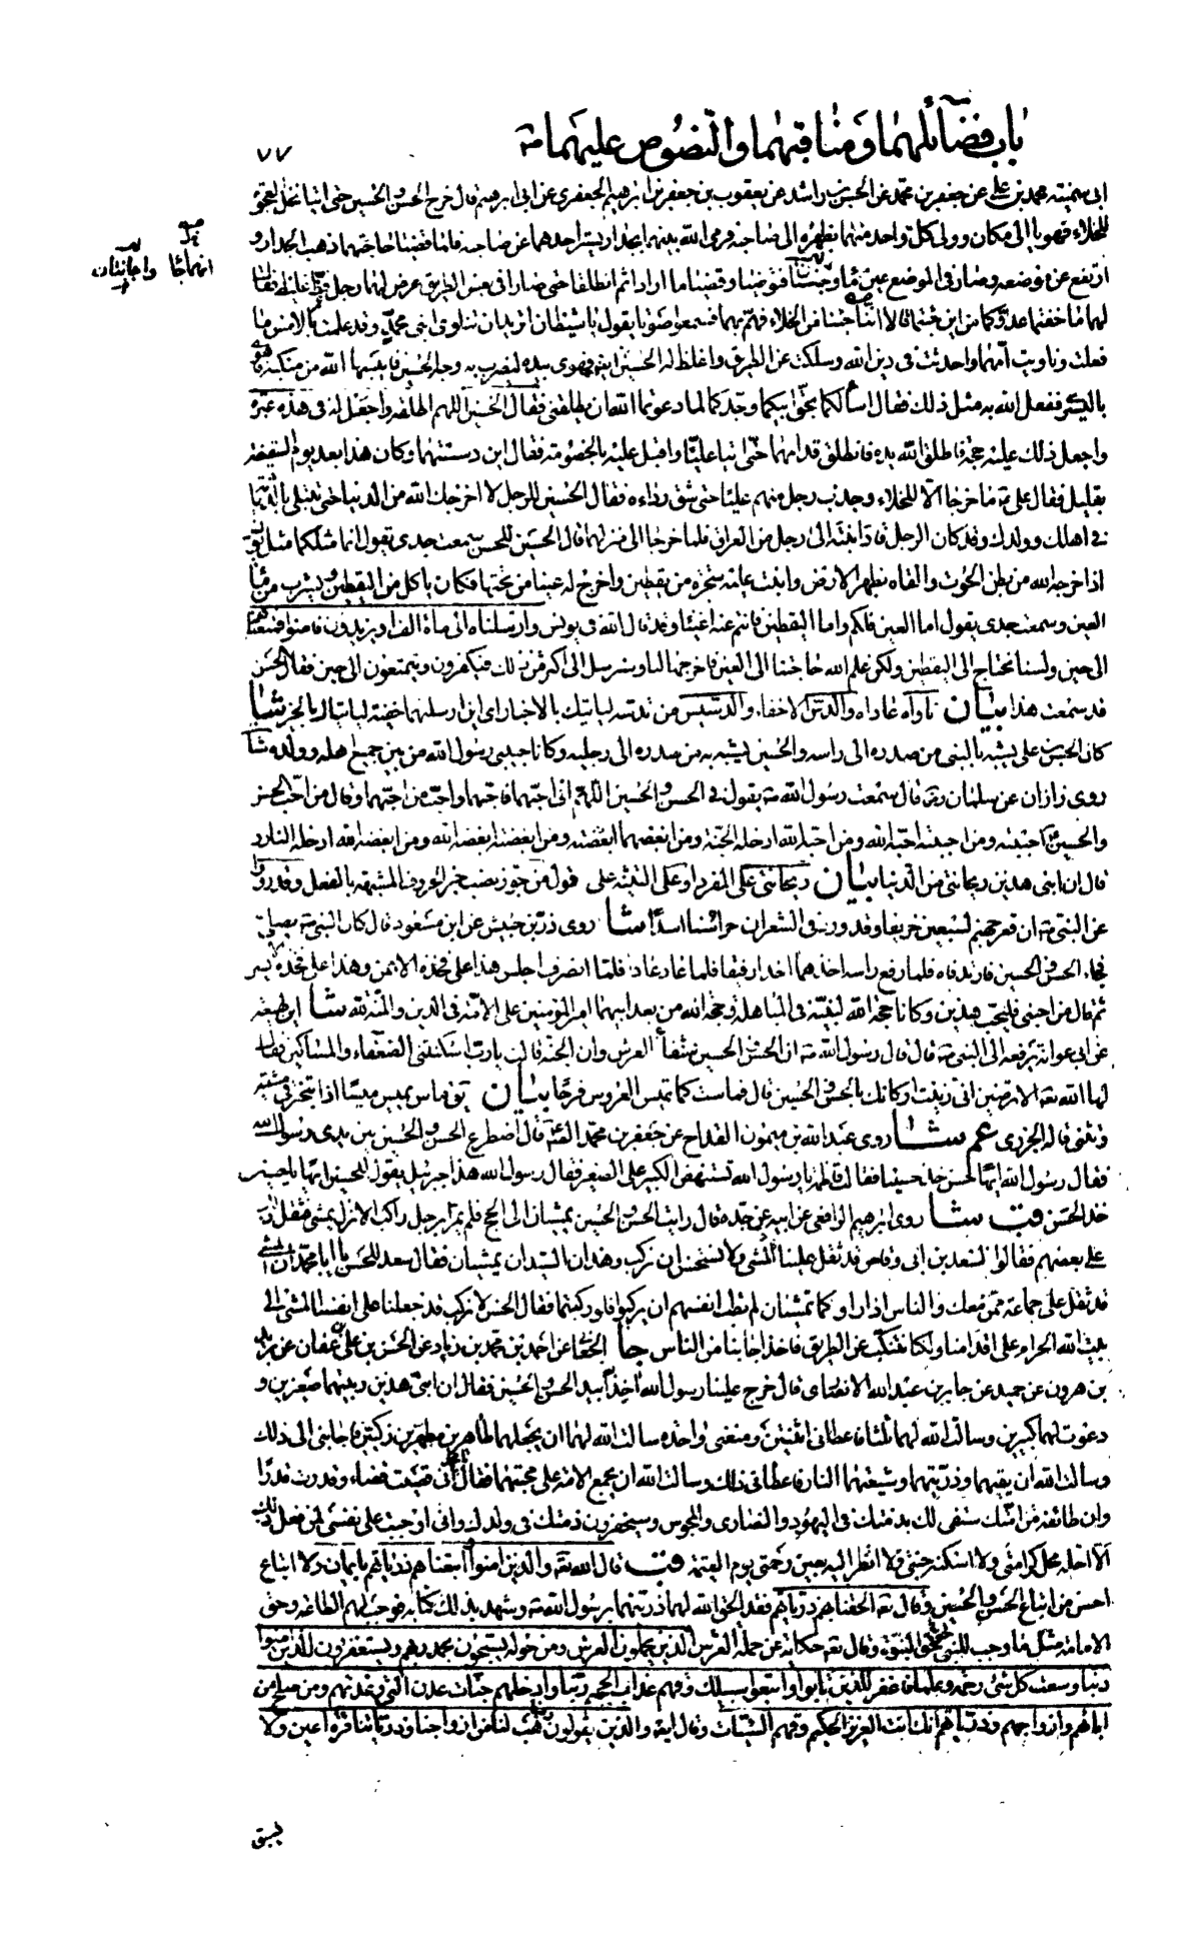 باب فضآئلهما ومناقبهما والنصوص عليهما صـ
٧٧
ابى سمينة محمد بن على عن جعفر بن محمد عن الحسن بن راشد عن يعقوب بن جعفر بن ابرهيم الجعفرى عن ابى ابرهيم قال خرج الحسن والحسين حتى اتيا نخل العجوة
للخلاء فهويا الى مكان وولى كل واحد منهما بظهره الى صاحبه فرمى الله بينهما بجدار يستر احدهما عن صاحبه فلما قضيا حاجتهما ذهب الجدار و
ارتفع عن موضعه وصار فى الموضع عين ماء وجنتان فتوضيا وقضيا ما ارادا ثم انطلقا حتى صارا فى بعض الطريق عرض لهما رجل فظ غليظ فقال
لهما ما خفتما عدوكما من اين جئتما فقالا اننا جئنا من الخلاء فهم بهما فسمعوا صوتا يقول يا شيطان اتريد ان تناوى ابنى محمد وقد علمت بالامس ما
فعلت وناويت امهما واحدثت فى دين الله وسلكت عن الطريق واغلظ له الحسين ايضا فهوى بيده ليضرب به وجه الحسين فايبسها الله من منكبه فاهوى
باليسرى ففعل الله به مثل ذلك فقال اسألكما بحق ابيكما وجدكما لما دعوتما الله ان يطلقنى فقال الحسين اللهم اطلقه واجعل له فى هذه عبرة
واجعل ذلك عليه حجة فاطلق الله يده فانطلق قدامهما حتى اتيا عليا واقبل عليه بالخصومة فقال اين دسستهما وكان هذا بعد يوم السقيفة
بقليل فقال على ما خرجا الا للخلاء وجذب رجل منهم عليا حتى شق رداءه فقال الحسين للرجل لا اخرجك الله من الدنيا حتى تبتلى بالدياثة
فى اهلك وولدك وقد كان الرجل قاد ابنته الى رجل من العراق فلما خرجا الى منزلهما قال الحسين للحسن سمعت جدى يقول انما مثلكما مثل يونس
اذ اخرجه الله من بطن الحوت والقاه بظهر الارض وانبت عليه شجرة من يقطين واخرج له عينا من تحتها فكان ياكل من اليقطين ويشرب من ماء
العين وسمعت جدى يقول اما العين فلكم واما اليقطين فانتم عنه اغنياء وقد قال الله فى يونس وارسلناه الى مائة الف او يزيدون فامنوا فمتعناهم
الى حين ولسنا نحتاج الى اليقطين ولكن علم الله حاجتنا الى العين فاخرجها لنا وسنرسل الى اكثر من ذلك فيكفرون ويتمتعون الى حين فقال الحسن
قد سمعت هذا بيان ناواه عاداه والدس الاخفاء والدسيس من تدسه لياتيك بالاخبار اى اين ارسلتهما خفية لياتيا بالخبر شا
كان الحسن بن على يشبه بالنبى من صدره الى راسه والحسين يشبه به من صدره الى رجليه وكانا حبيبى رسول الله من بين جميع اهله وولده شا
روى زاذان عن سلمان رض قال سمعت رسول الله صـ يقول فى الحسن والحسين اللهم انى احبهما فاحبهما واحب من احبهما وقال من احب الحسن
والحسين احببته ومن احببته احبه الله ومن احبه الله ادخله الجنة ومن ابغضهما ابغضته ومن ابغضته ابغضه الله ومن ابغضه الله ادخله النار و
قال ان ابنى هذين ريحانتى من الدنيا بيان ريحانتى على المفرد او على التثنيه على قول من جوز نصب خبر الحروف المشبهة بالفعل وقد رووا
عن النبى صـ ان قعر جهنم لسبعين خريفا وقد ورد فى الشعر ان حراسنا اسدا شا روى ذر بن حبيش عن ابن مسعود قال كان النبى صـ يصلى
فجاء الحسن والحسين فارتدفاه فلما رفع راسه اخذهما اخذا رفيقا فلما عاد عادا فلما انصرف اجلس هذا على فخذه الايمن وهذا على فخذه الايسر
ثم قال من احبنى فليحب هذين وكانا حجة الله لنبيه فى المباهلة وحجة الله من بعد ابيهما امير المؤمنين على الامة فى الدين والمنة لله شا ابن لهيعة
عن ابى عوانة يرفعه الى النبى صـ قال قال رسول الله صـ ان الحسن والحسين شنفا العرش وان الجنة قالت يا رب اسكنتنى الضعفاء والمساكين فقال
لها الله تعـ الا ترضين انى زينت اركانك بالحسن والحسين قال فماست كما تميس العروس فرحا بيان يق ماس يميس ميسا اذا تبختر فى مشيه
وتثنى قاله الجزرى عم شا روى عبد الله بن ميمون القداح عن جعفر بن محمد قال اصطرع الحسن والحسين بين يدى رسول الله
فقال رسول الله ايها الحسن خذ حسينا فقالت فاطمة يا رسول الله تستنهض الكبير على الصغير فقال رسول الله هذا جبرئيل يقول للحسين ايها يا حسين
خذ الحسن قب شا روى ابرهيم الرافعى عن ابيه عن جده قال رايت الحسن والحسين يمشيان الى الحج فلم يمرا برجل راكب الا نزل يمشى فثقل ذلك
على بعضهم فقالوا لسعد بن ابى وقاص قد ثقل علينا المشى ولا نستحسن ان نركب وهذان السيدان يمشيان فقال سعد للحسن يا ابا محمد ان المشى
قد ثقل على جماعة ممن معك والناس اذا راوكما تمشيان لم تطب انفسهم ان يركبوا فلو ركبتما فقال الحسن لا نركب قد جعلنا على انفسنا المشى الى
بيت الله الحرام على اقدامنا ولكنا نتنكب عن الطريق فاخذا جانبا من الناس جا الحفا عن احمد بن محمد بن زياد عن الحسن بن على بن عفان عن يزيد
بن هرون عن حميد عن جابر بن عبد الله الانصارى قال خرج علينا رسول الله اخذا بيد الحسن والحسين فقال ان ابنى هذين ربيتهما صغيرين و
دعوت لهما كبيرين وسالت الله لهما ثلثا فاعطانى اثنتين ومنعنى واحدة سالت الله لهما ان يجعلهما طاهرين مطهرين زكيين فاجابنى الى ذلك
وسالت الله ان يقيهما وذريتهما وشيعتهما النار فاعطانى ذلك وسالت الله ان يجمع الامة على محبتهما فقال انى قضيت قضاء وقدرت قدرا
وان طائفة من امتك ستفى لك بذمتك فى اليهود والنصارى والمجوس وسيخفرون ذمتك فى ولدك وانى اوجبت على نفسى لمن فعل ذلك
الا احله محل كرامتى ولا اسكنه جنتى ولا انظر اليه بعين رحمتى يوم القيمة قب قال الله تعـ والذين امنوا واتبعناهم ذرياتهم بايمان ولا اتباع
احسن من اتباع الحسن والحسين وقال تعـ الحقنا بهم ذرياتهم فقد الحق الله بهما ذريتهما برسول الله صـ وشهد بذلك كتابه فوجب لهم الطاعة وحق
الامامة مثل ما وجب للنبى لحق النبوة وقال تعـ حكاية عن حملة العرش الذين يحملون العرش ومن حوله يسبحون بحمد ربهم ويستغفرون للذين امنوا
ربنا وسعت كل شئ رحمة وعلما فاغفر للذين تابوا واتبعوا سبيلك وقهم عذاب الجحيم ربنا وادخلهم جنات عدن التى وعدتهم ومن صلح من
ابائهم وازواجهم وذرياتهم انك انت العزيز الحكيم وقهم السيئات وقال ايضا والذين يقولون ربنا هب لنا من ازواجنا وذرياتنا قرة اعين ولا
يسبق